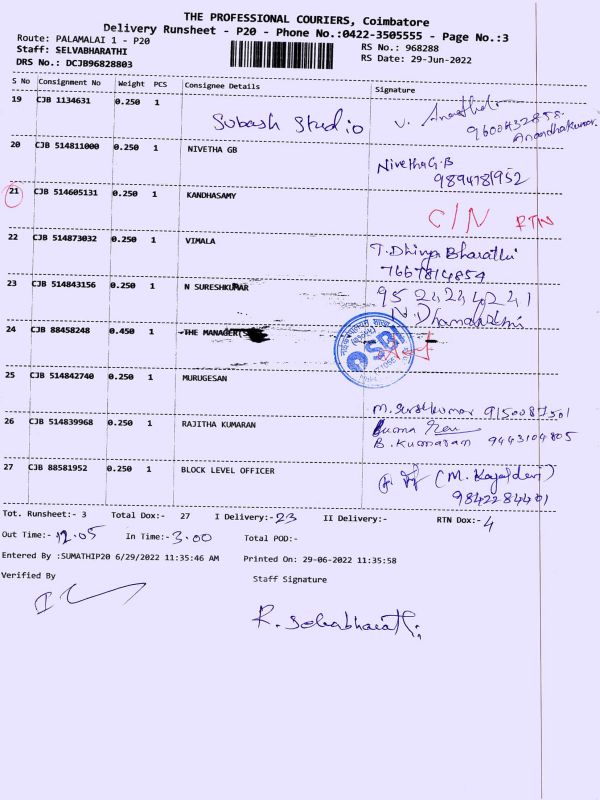 THE PROFESSIONAL COURIERS, Coimbatore
Delivery Runsheet - P20 - Phone No.:0422-3505555 - Page No.:3
Route: PALAMALAI 1 - P20 RS No.: 968288
Staff: SELVABHARATHI RS Date: 29-Jun-2022
DRS No.: DCJB96828803
S No Consignment No Weight PCS Consignee Details Signature
19 CJB 1134631 0.250 1 Subash Studio V.
9600432858.
Anandhakumar.
20 CJB 514811000 0.250 1 NIVETHA GB Nivetha G.B
9894781952
21 CJB 514605131 0.250 1 KANDHASAMY C/N RTN
22 CJB 514873032 0.250 1 VIMALA T. Dhivya Bharathi
7667814854
23 CJB 514843156 0.250 1 N SURESHKUMAR 9524234241
N. Dhanalakshmi
24 CJB 88458248 0.450 1 THE MANAGER(S SBI
25 CJB 514842740 0.250 1 MURUGESAN M. 9150087501
26 CJB 514839968 0.250 1 RAJITHA KUMARAN B. Kumaran 9443104805
27 CJB 88581952 0.250 1 BLOCK LEVEL OFFICER (M. )
9842284401
Tot. Runsheet:- 3 Total Dox:- 27 I Delivery:- 23 II Delivery:- RTN Dox:- 4
Out Time:- 12.05 In Time:- 3.00 Total POD:-
Entered By :SUMATHIP20 6/29/2022 11:35:46 AM Printed On: 29-06-2022 11:35:58
Verified By Staff Signature
R. Selvabharathi